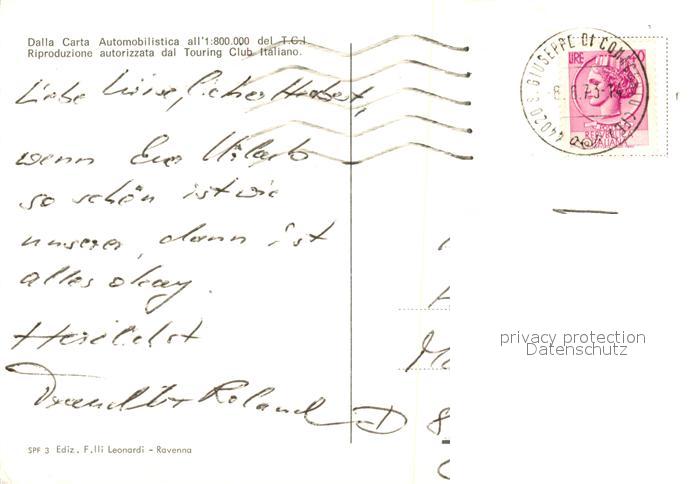 Dalla Carta Automobilistica all'1:800.000 del T.C.I.
Riproduzione autorizzata dal Touring Club Italiano.
Liebe Luise, lieber Herbert,
wenn Euer Urlaub
so schön ist wie
unserer, dann ist
alles okay.
Herzlichst
Roland
D
SPF 3 Ediz. F.lli Leonardi - Ravenna
44020 S. GIUSEPPE DI
8.6.73
LIRE
REPUBBLICA
ITALIANA
privacy protection
Datenschutz